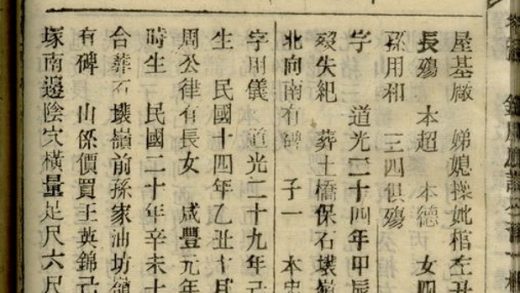 屋基厰 娣媳操妣棺左丑
長殤 本超 本德 女四
孫用和 三四俱殤
字 道光二十四年甲辰
歿失紀 葬土橋保石壞嶺
北向南有碑 子一 本忠
字用儀 道光二十九年己
生 民國十四年乙丑十月
周公律有長女 咸豐元年
時生 民國二十年辛未十
合葬石壞嶺前孫家油坊嶺
有碑 山係價買王英錦己
塚南邉陰穴橫量足尺六尺